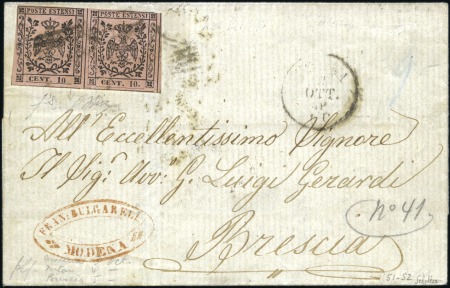 POSTE ESTENSI POSTE ESTENSI
CENT. 10. CENT. 10.
OTT.
All' Eccellentissimo Signore
Il Sig.r Avv: G. Luigi Gerardi
Brescia
FRAN. BULGARELLI
MODENA
No 41
51-52